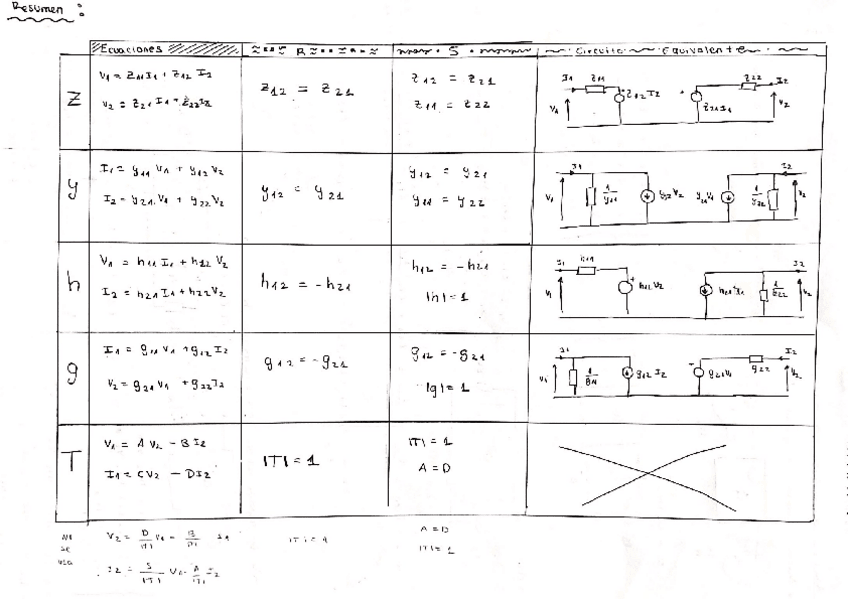 Resumen:
Ecuaciones R S Circuito Equivalente
Z
V1 = Z11 I1 + Z12 I2
V2 = Z21 I1 + Z22 I2
Z12 = Z21
Z12 = Z21
Z11 = Z22
I1 Z11 Z12 I2 V1
Z22 I2 Z21 I1 V2
y
I1 = y11 V1 + y12 V2
I2 = y21 V1 + y22 V2
y12 = y21
y12 = y21
y11 = y22
I1 V1 1/y11 y12 V2
y21 V1 1/y22 I2 V2
h
V1 = h11 I1 + h12 V2
I2 = h21 I1 + h22 V2
h12 = -h21
h12 = -h21
|h| = 1
I1 h11 V1 h12 V2
h21 I1 I2 V2
g
I1 = g11 V1 + g12 I2
V2 = g21 V1 + g22 I2
g12 = -g21
g12 = -g21
|g| = 1
I1 V1 1/g11 g12 I2
g21 V1 g22 I2 V2
T
V1 = A V2 - B I2
I1 = C V2 - D I2
|T| = 1
|T| = 1
A = D
V2 = D/|T| V1 - B/|T|
|T| = 1
A = D
|T| = 1